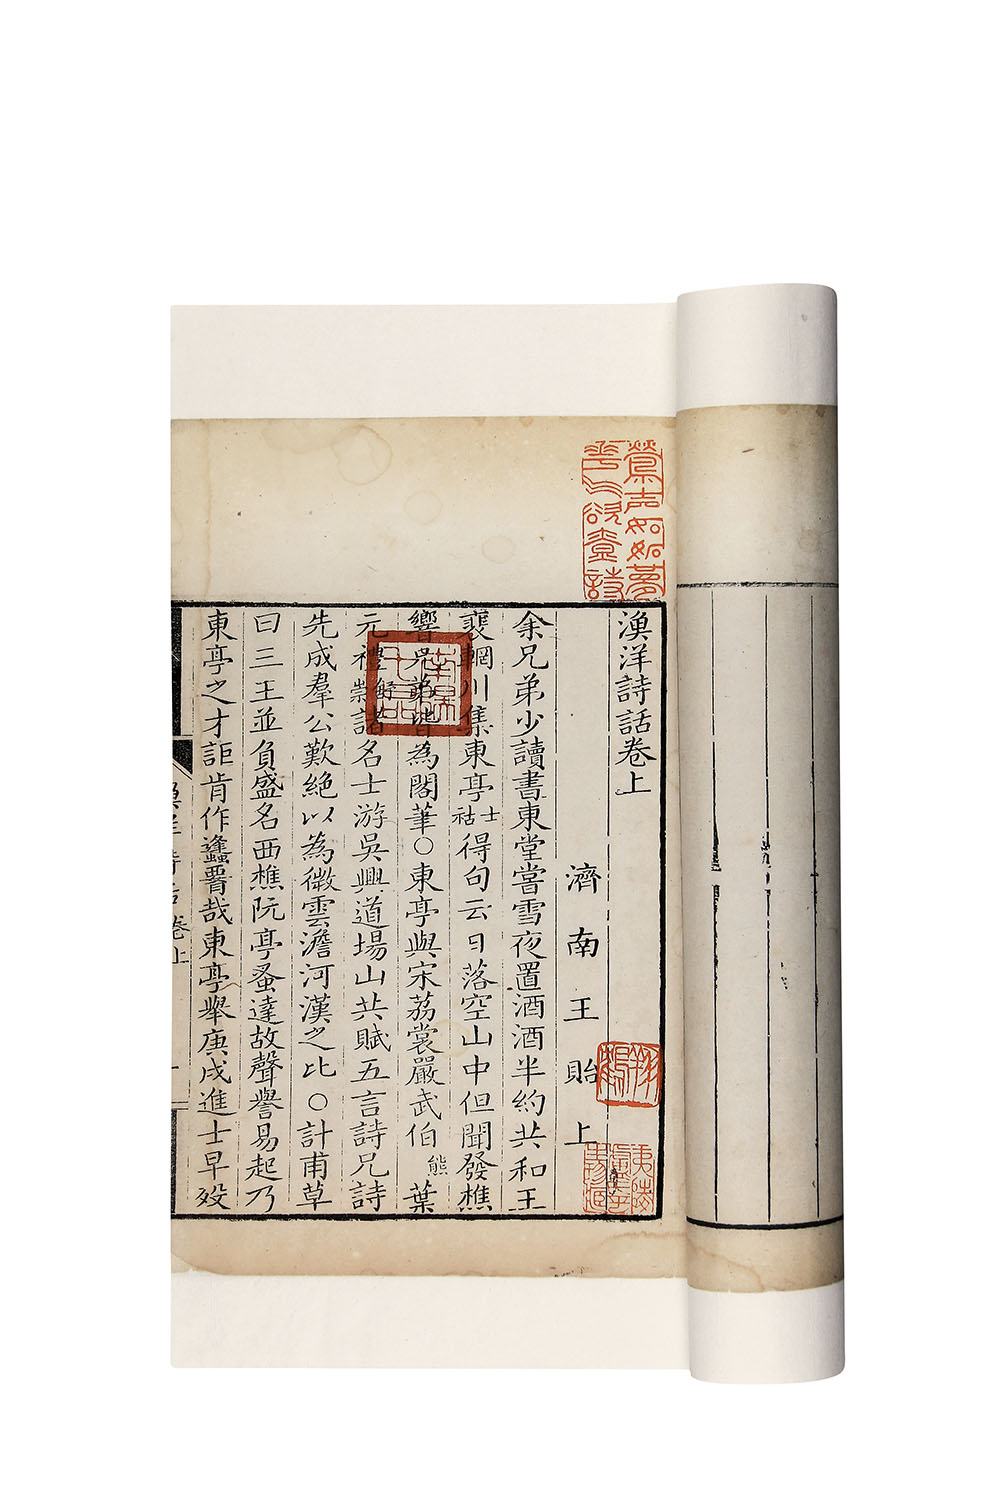 漁洋詩話卷上
濟南王貽上
余兄弟少讀書東堂嘗雪夜置酒酒半約共和王
裴輞川集東亭士祜得句云日落空山中但聞發樵
響兄弟皆為閣筆○東亭與宋荔裳嚴武伯熊葉
元禮舒崇諸名士游吳興道場山共賦五言詩兄詩
先成羣公歎絶以為微雲澹河漢之比○計甫草
曰三王並負盛名西樵阮亭蚤達故聲譽易起乃
東亭之才詎肯作蠭腰哉東亭舉庚戌進士早歿
漁洋詩話卷上
鶯声如夢